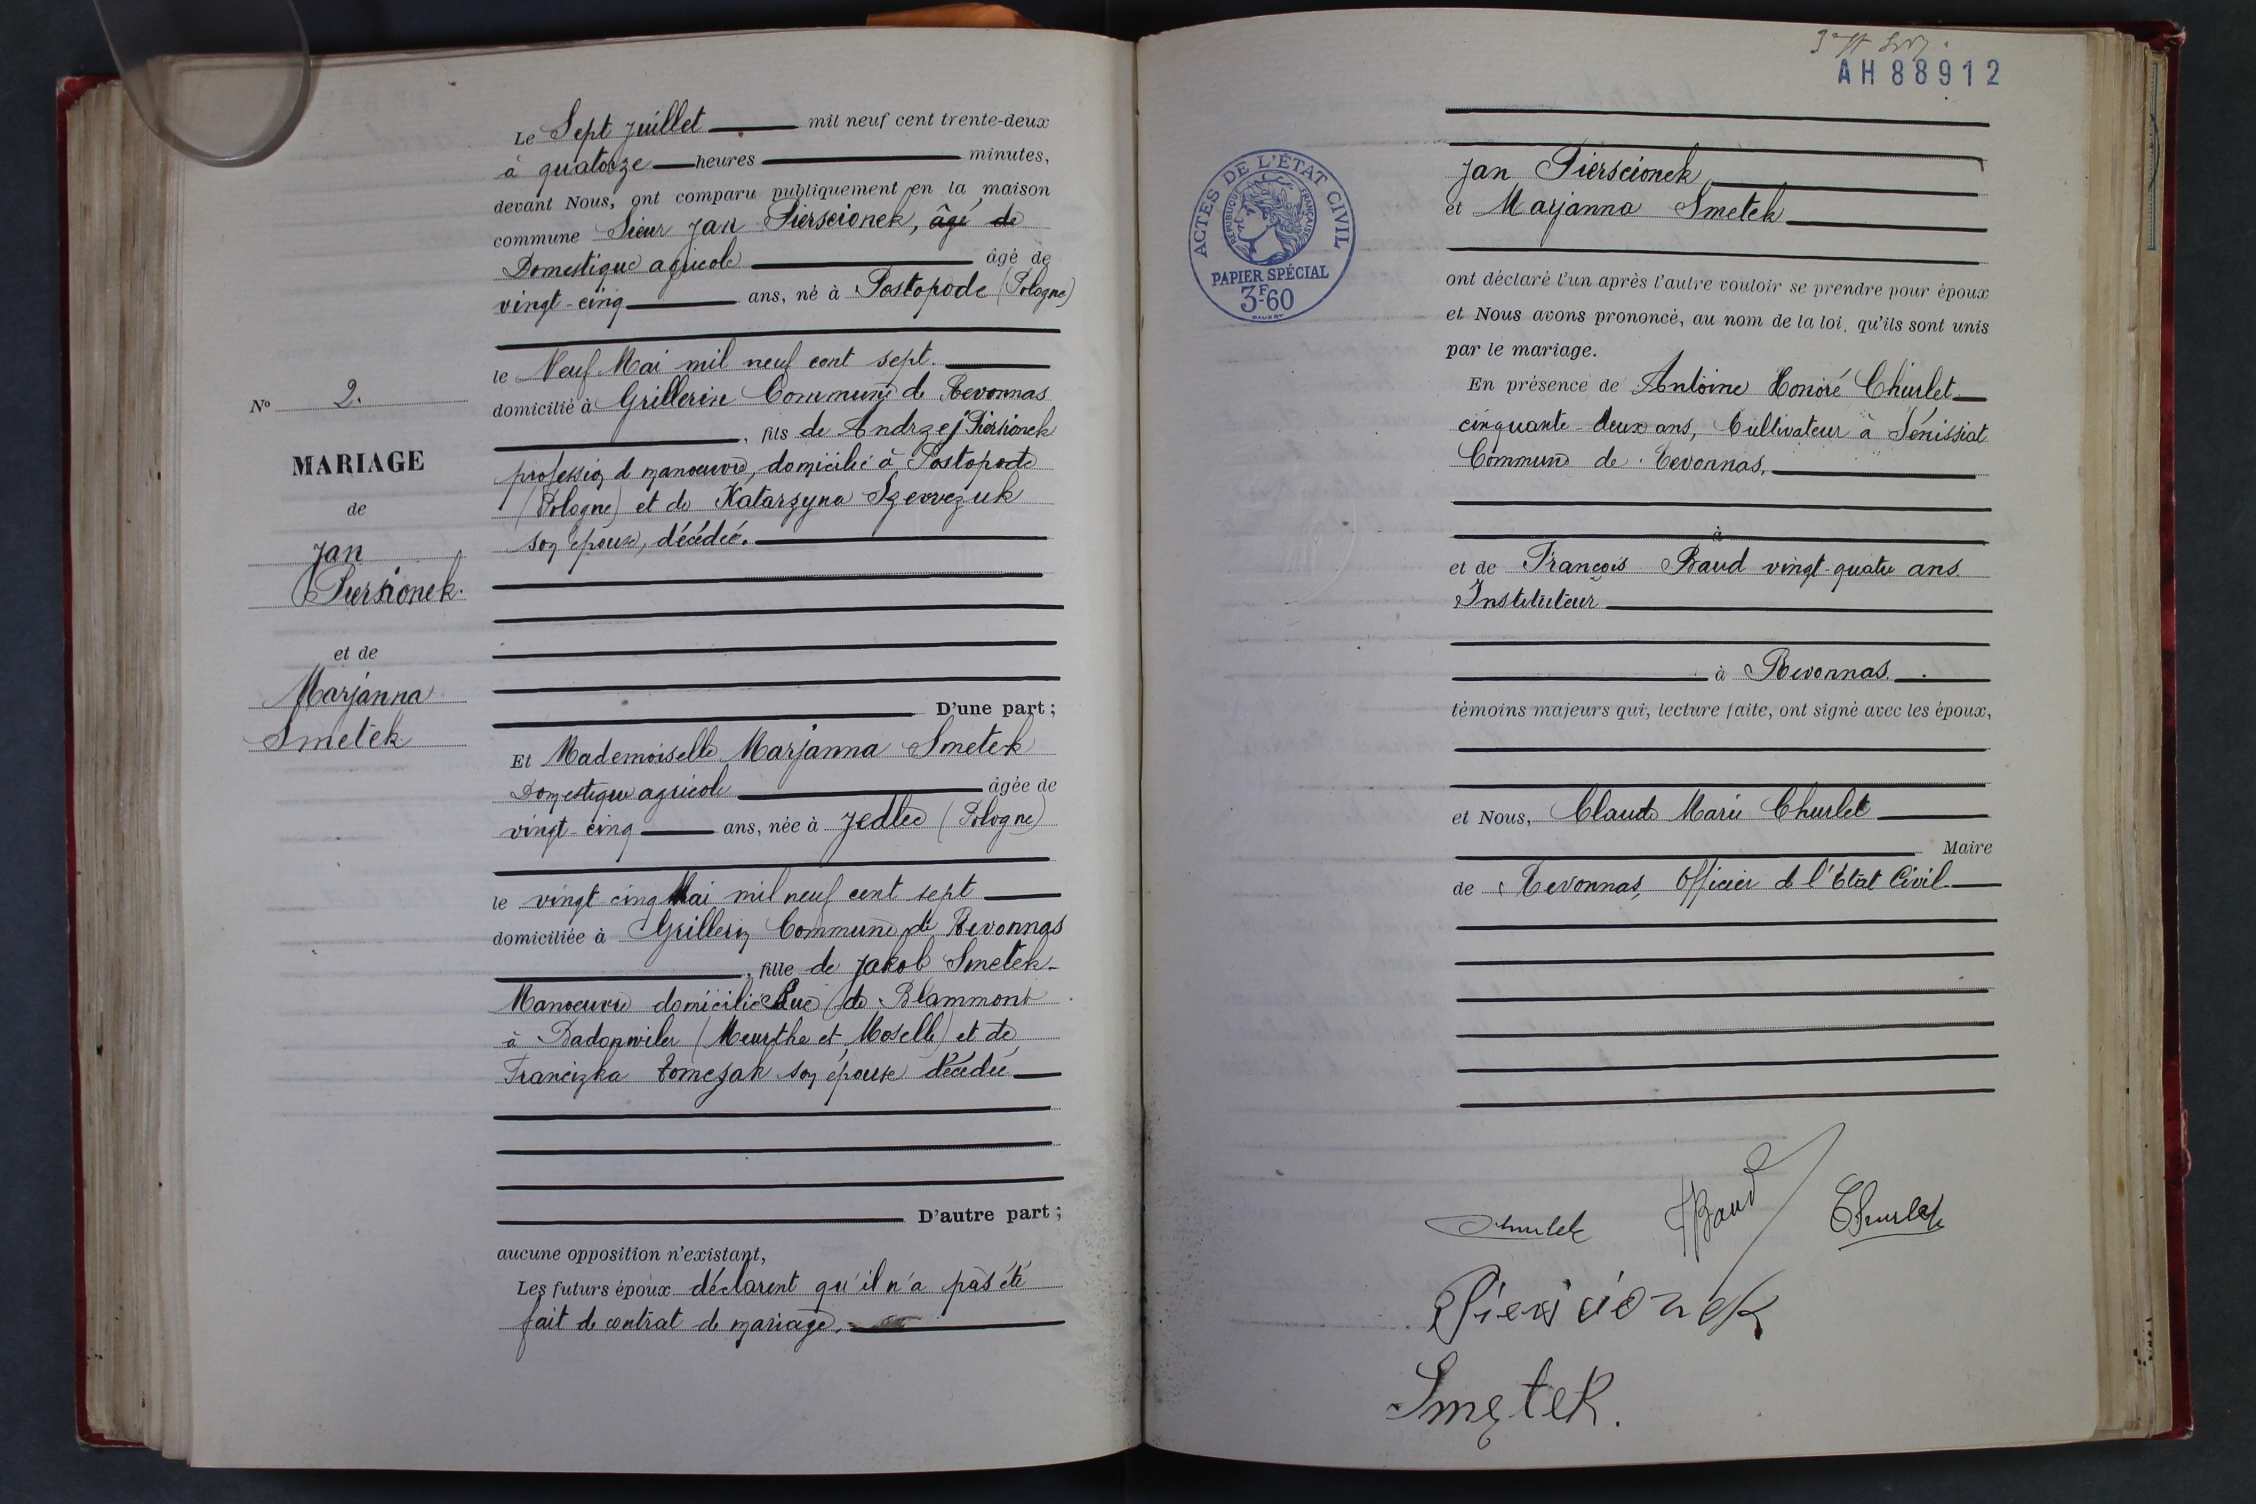 Le Sept juillet mil neuf cent trente-deux
à quatorze heures minutes,
devant Nous, ont comparu publiquement en la maison
commune Sieur Jan Pierscionek, âgé de
Domestique agricole âgé de
vingt-cinq ans, né à Postopode (Pologne)
le Neuf Mai mil neuf cent sept.
domicilié à Grillerin Commune de Revonnas
, fils de Andrzej Piersionek
profession de manoeuvre, domicilié à Postopode
(Pologne) et de Katarzyna Szewczuk
son épouse, décédée.
D'une part ;
Et Mademoiselle Marjanna Smetek
Domestique agricole âgée de
vingt-cinq ans, née à Jedlec (Pologne)
le vingt cinq Mai mil neuf cent sept
domiciliée à Grillerin Commune de Revonnas
, fille de Jakob Smetek
Manoeuvre domicilié Rue de Blammont
à Badonwiler (Meurthe et Moselle) et de
Francizka Tomczak son épouse décédée
D'autre part ;
aucune opposition n'existant,
Les futurs époux déclarent qu'il n'a pas été
fait de contrat de mariage.
No 2.
MARIAGE
de
Jan
Piersionek.
et de
Marjanna
Smetek
AH 88912
ACTES DE L'ÉTAT CIVIL
RÉPUBLIQUE FRANÇAISE
PAPIER SPÉCIAL
3F.60
Jan Pierscionek
et Marjanna Smetek
ont déclaré l'un après l'autre vouloir se prendre pour époux
et Nous avons prononcé, au nom de la loi, qu'ils sont unis
par le mariage.
En présence de Antoine Honoré Churlet
cinquante-deux ans, Cultivateur à Sénissiat
Commune de Revonnas,
à
et de François Baud vingt-quatre ans
Instituteur
à Revonnas.
témoins majeurs qui, lecture faite, ont signé avec les époux,
et Nous, Claude Marie Churlet
Maire
de Revonnas, Officier de l'Etat Civil
Churlet FBaud Churlet
Pierscionek
Smętek.